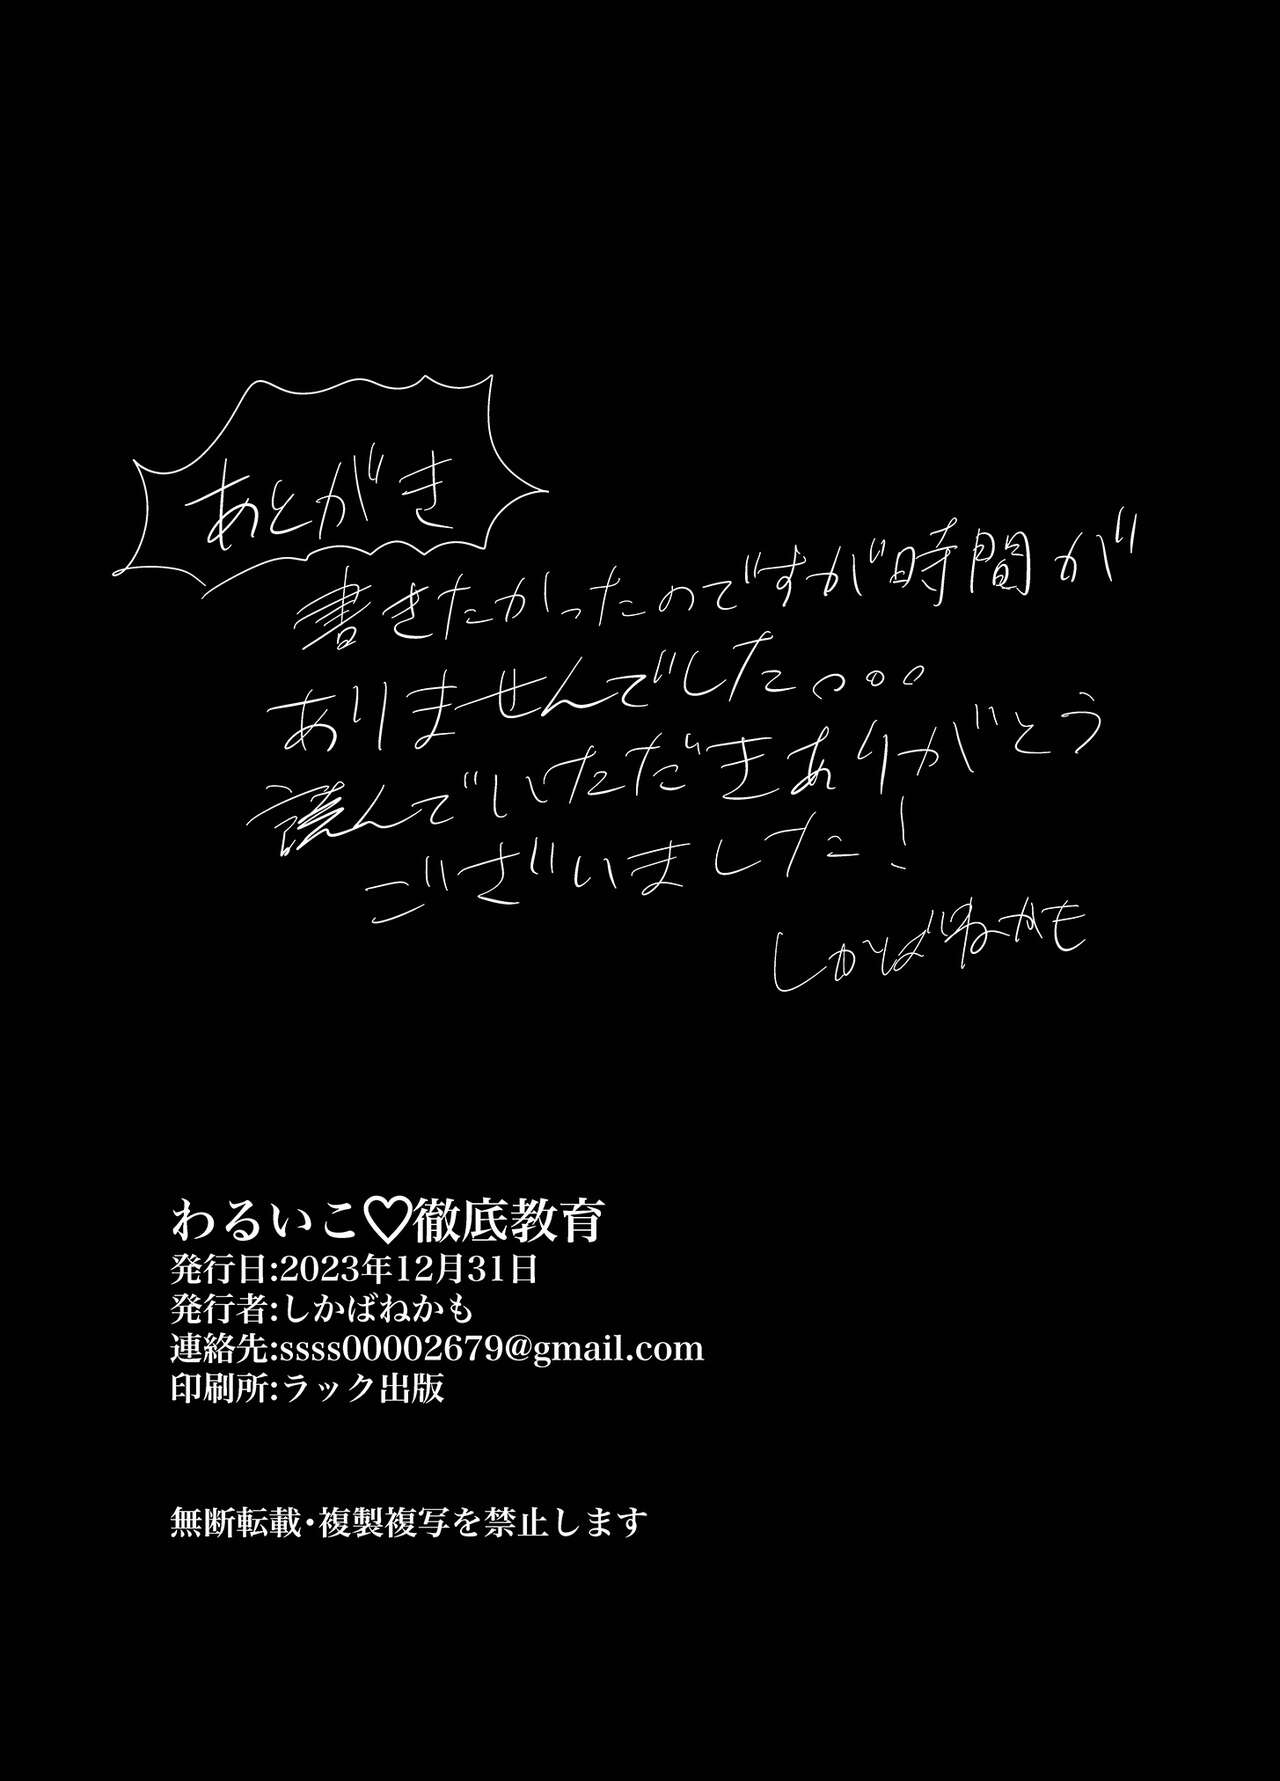 あとがき
書きたかったのですが時間が
ありませんでした。。。
読んでいただきありがとう
ございました!
しかばねかも
わるいこ♡徹底教育
発行日:2023年12月31日
発行者:しかばねかも
連絡先:ssss00002679@gmail.com
印刷所:ラック出版
無断転載・複製複写を禁止します